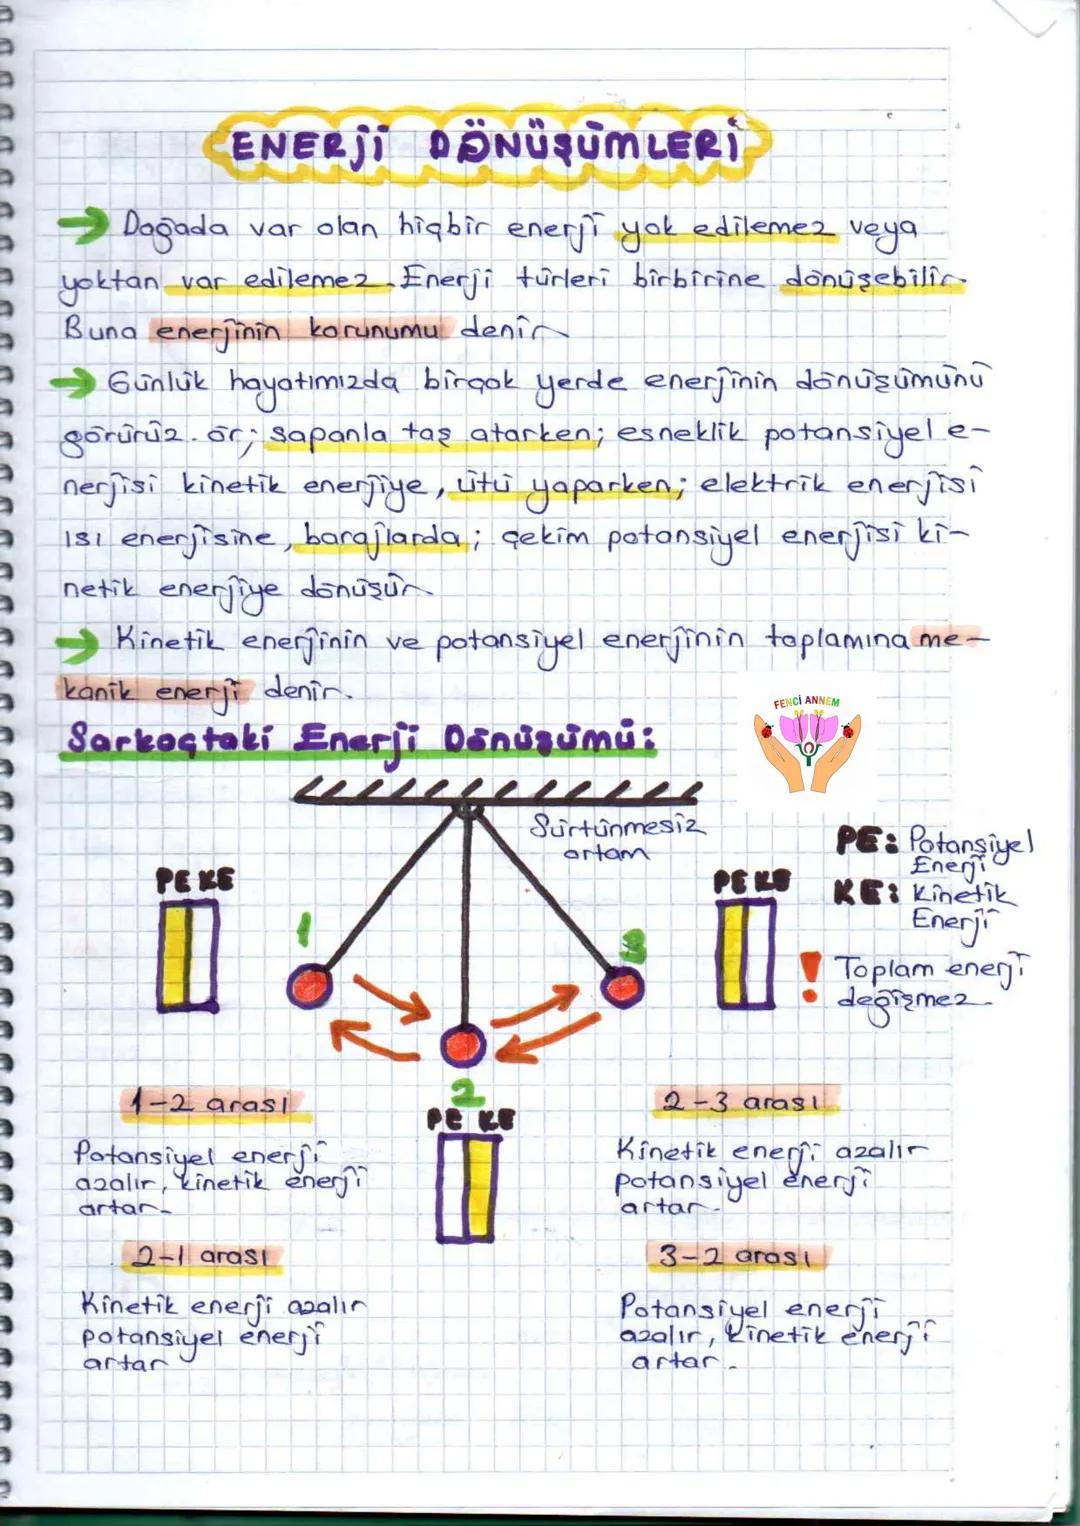 ENERJİ DÖNÜŞÜMLERİ
→ Doğada var olan hiçbir enerji yok edilemez veya
yoktan var edilemez. Enerji türleri birbirine dönüşebilir.
Buna enerjinin korunumu denir
→ Günlük hayatımızda birçok yerde enerjinin dönüşümünü
görürüz. ör; sapanla taş atarken; esneklik potansiyel e-
nerjisi kinetik enerjiye, ütü yaparken; elektrik enerjisi
ısı enerjisine, barajlarda; çekim potansiyel enerjisi ki-
netik enerjiye dönüşür.
→ Kinetik enerjinin ve potansiyel enerjinin toplamına me-
kanik enerji denir.
FENCİ ANNEM
Sarkaçtaki Enerji Dönüşümü:
Sürtünmesiz
ortam
PE: Potansiyel
Enerji
KE: Kinetik
Enerji
! Toplam enerji
değişmez.
PE KE
1
3
PE KE
2
PE KE
1-2 arası
Potansiyel enerji
azalır, kinetik enerji
artar.
2-1 arası
Kinetik enerji azalır
potansiyel enerji
artar
2-3 arası
Kinetik enerji azalır
potansiyel enerji
artar.
3-2 arası
Potansiyel enerji
azalır, kinetik enerji
artar.